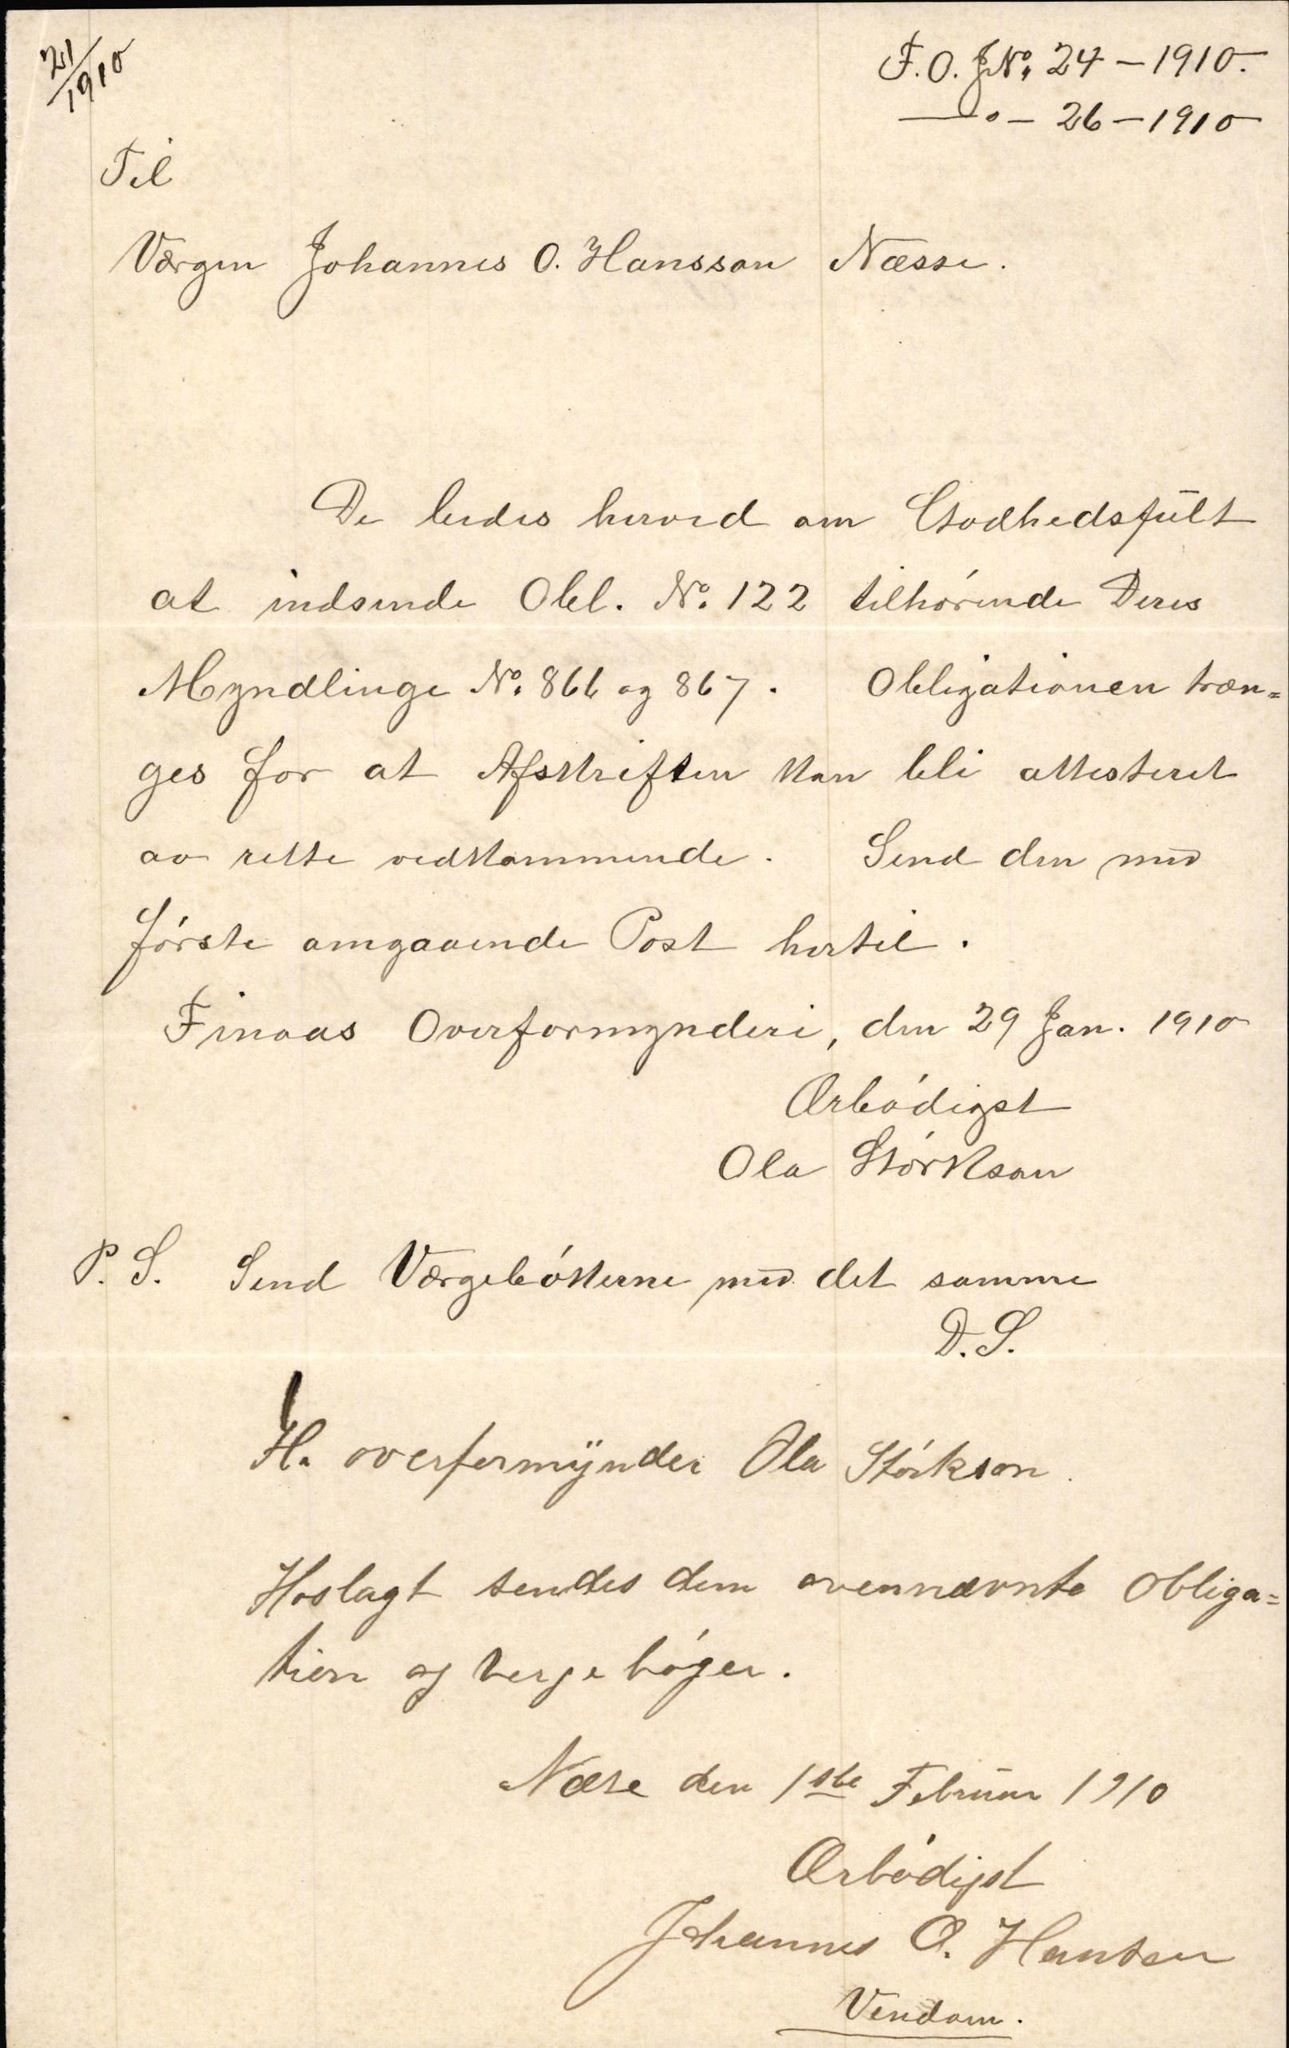 21/1910
F. O. JNo. 24 – 1910.
—"— 26 – 1910
Til
Værgen Johannes O. Hansson Næsse.
De bedes herved om Godhedsfült
at indsende Obl. No. 122 tilhørende Deres
Myndlinge No. 866 og 867. Obligationen træn=
ges for at Afskriften kan bli attesteret
av rette vedkommende. Send den med
første omgaaende Post hertil.
Finaas Overformynderi, den 29 Jan. 1910
Ærbødigst
Ola Størkson
P. S. Send Værgebøkerne med det samme
D. S.
H. overformÿnder Ola Størkson.
Hoslagt sendes dem ovennævnte Obliga=
tion og vergebøger.
Næse den 1ste Februar 1910
Ærbødigst
Johannes O. Hansen
Vendom.